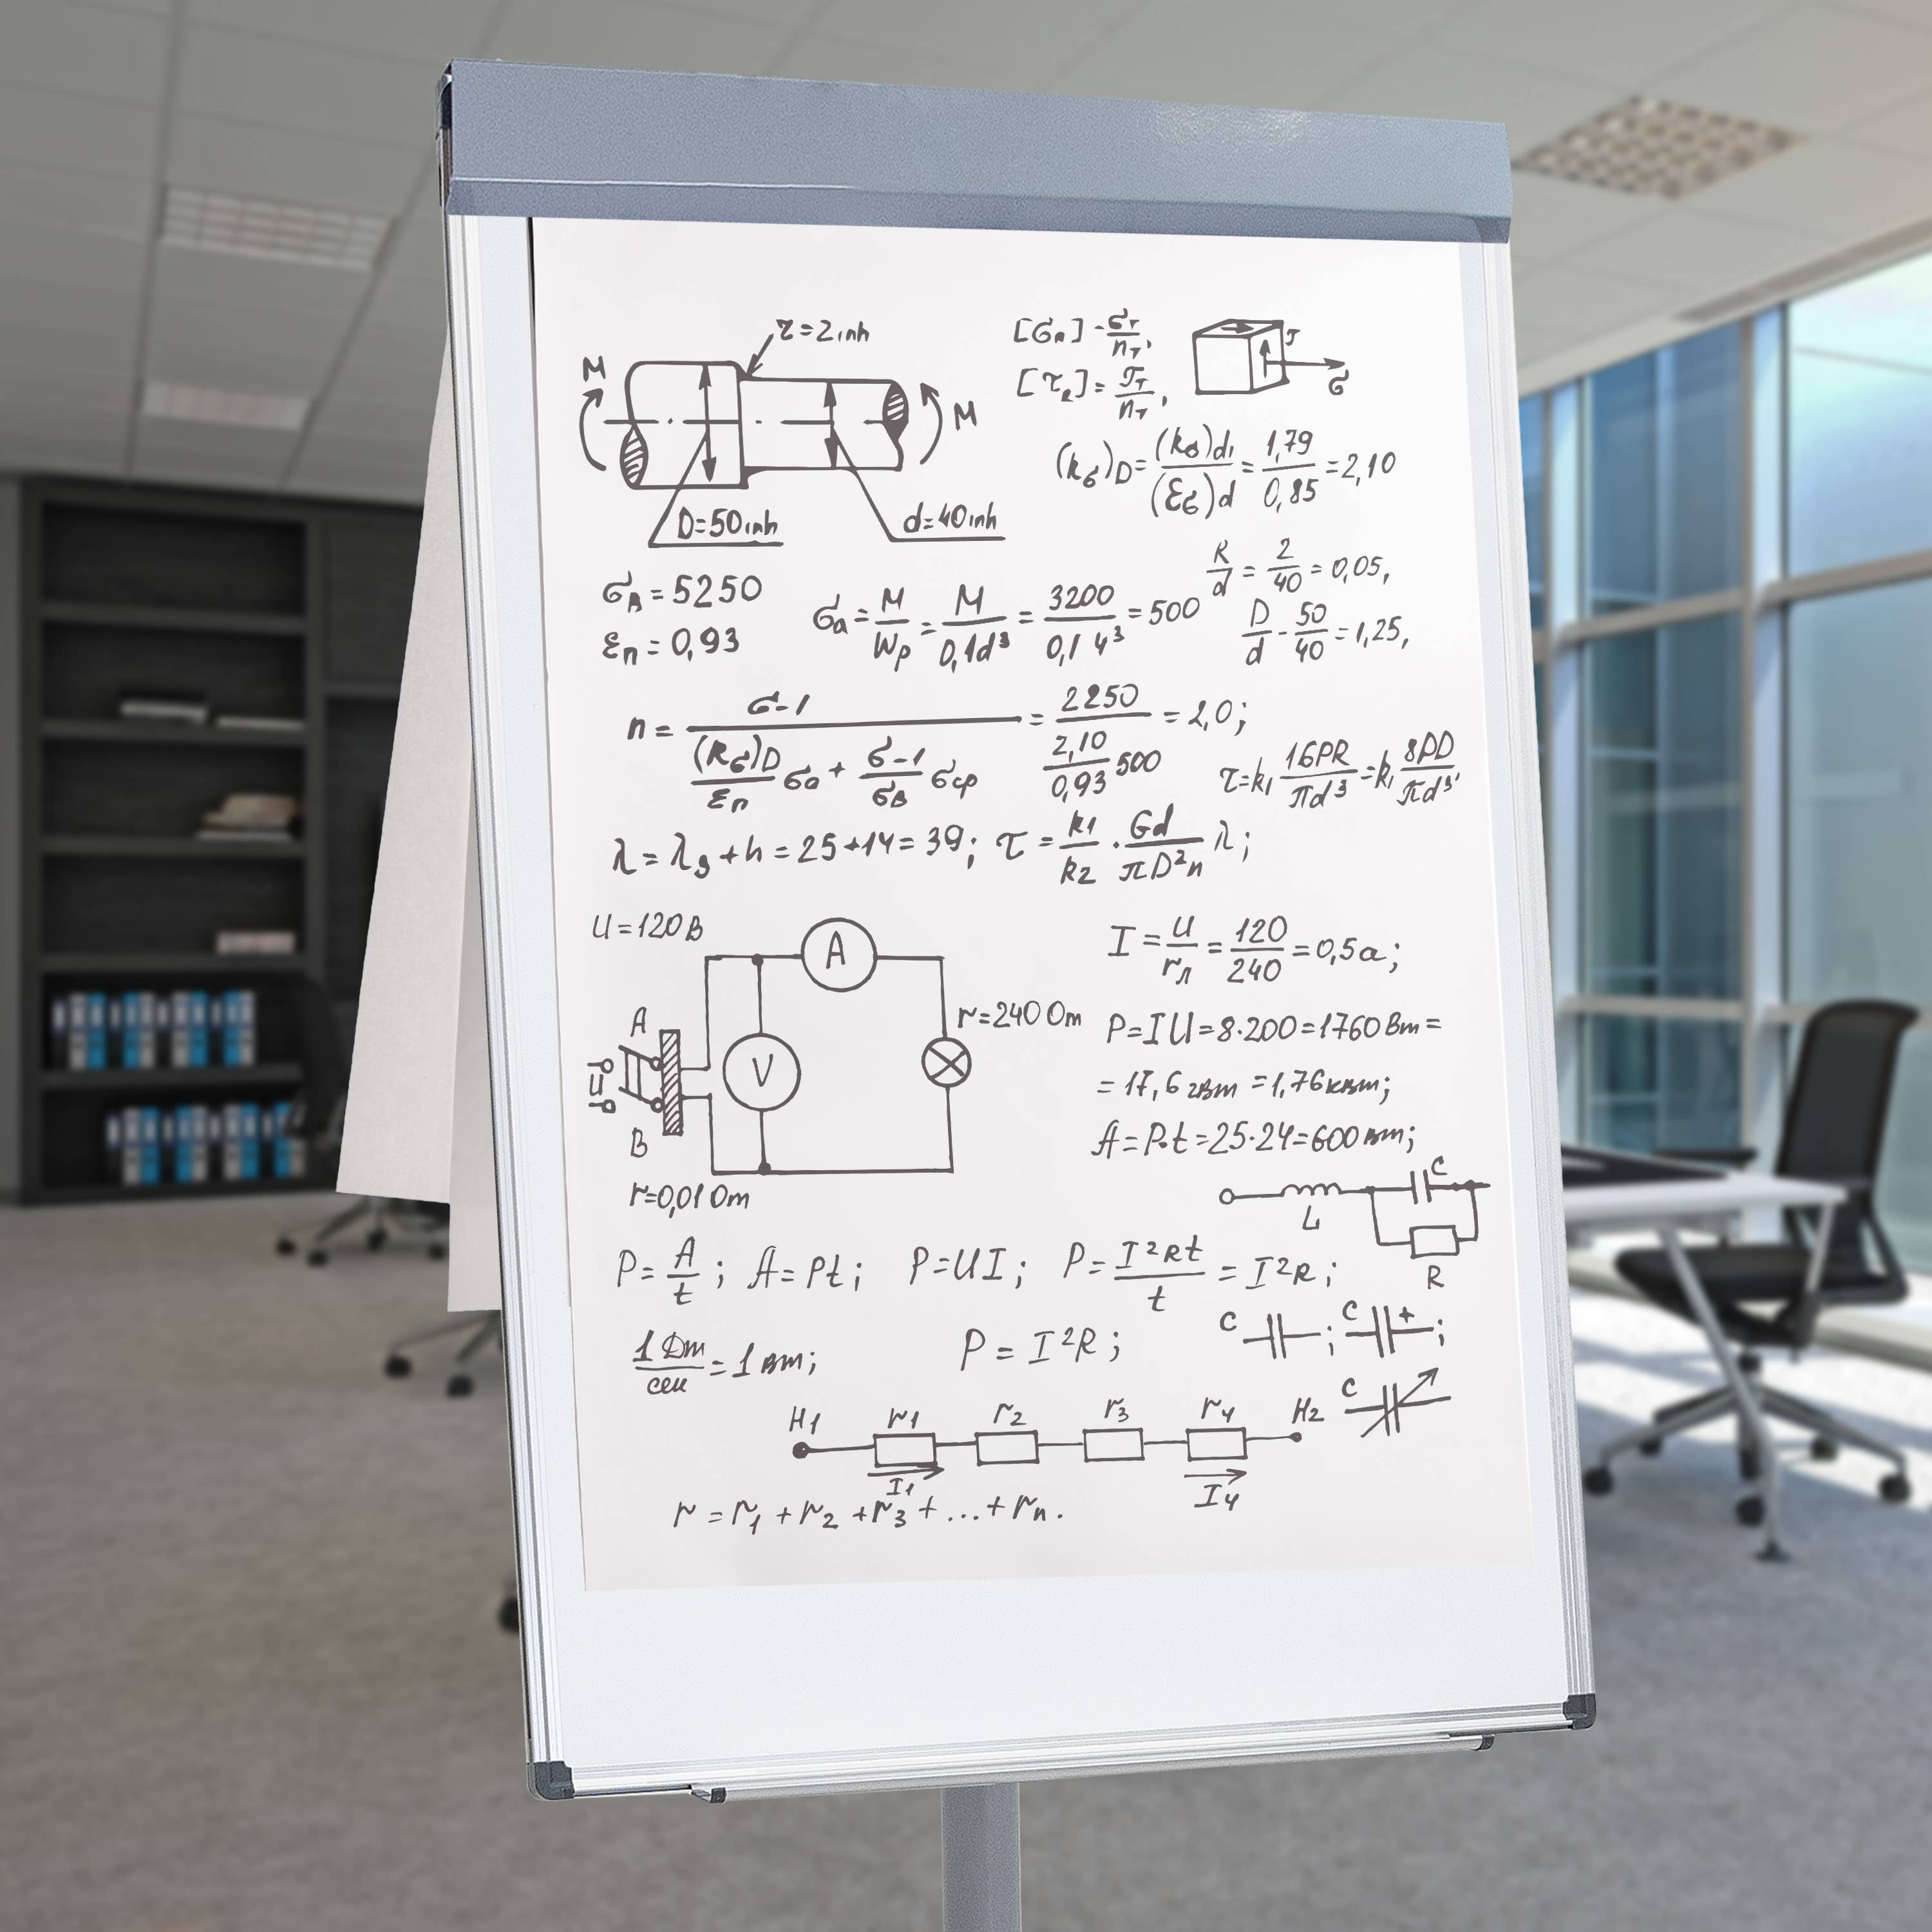 M
τ=2inh
D=50inh
d=40inh
M
[σ_R] - σ_T/n_T,
[τ_R] = 𝒯_T/n_T,
𝒯
σ
(k_σ)D=(k_σ)d₁/(ε_σ)d=1,79/0,85=2,10
R/d=2/40=0,05,
D/d-50/40=1,25,
σ_B=5250
ε_п=0,93
σ_a=M/W_p=M/0,1d³=3200/0,1 4³=500
n=σ-1/((R_σ)D/ε_п σ_a+σ-1/σ_B σ_ср)=2250/(2,10/0,93 500)=2,0;
τ=k₁ 16PR/πd³=k₁ 8PD/πd³,
λ=λ_з+h=25+14=39; τ=k₁/k₂·Gd/πD²n λ;
U=120В
A
V
A
B
U
r=240 Om
r=0,01 Om
I=U/r_л=120/240=0,5a;
P=IU=8·200=1760 Вт=
=17,6 гвт=1,76 квт;
A=P·t=25·24=600 вт;
L
C
R
P=A/t; A=Pt; P=UI; P=I²Rt/t=I²R;
1 Dm/сек=1 вт;
P=I²R;
C ; C + ;
C
H1 r1 r2 r3 r4 H2
I1 I4
r=r₁+r₂+r₃+...+rₙ.